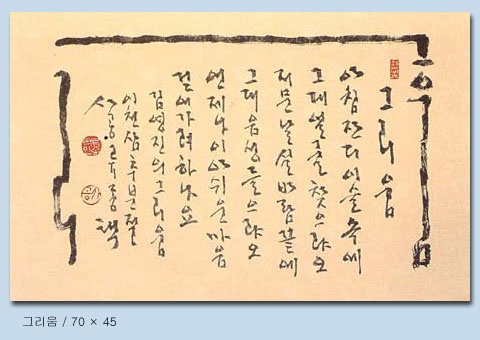 그리움
아침 잔디 이슬 속에
그대 얼굴 찾으랴오
저문 날 설 바람 끝에
그대 음성 들으랴오
언제나 이 아쉬운 마음
걸어가려 하나요
김영진의 그리움
이천삼 추분절
그리움 / 70 × 45